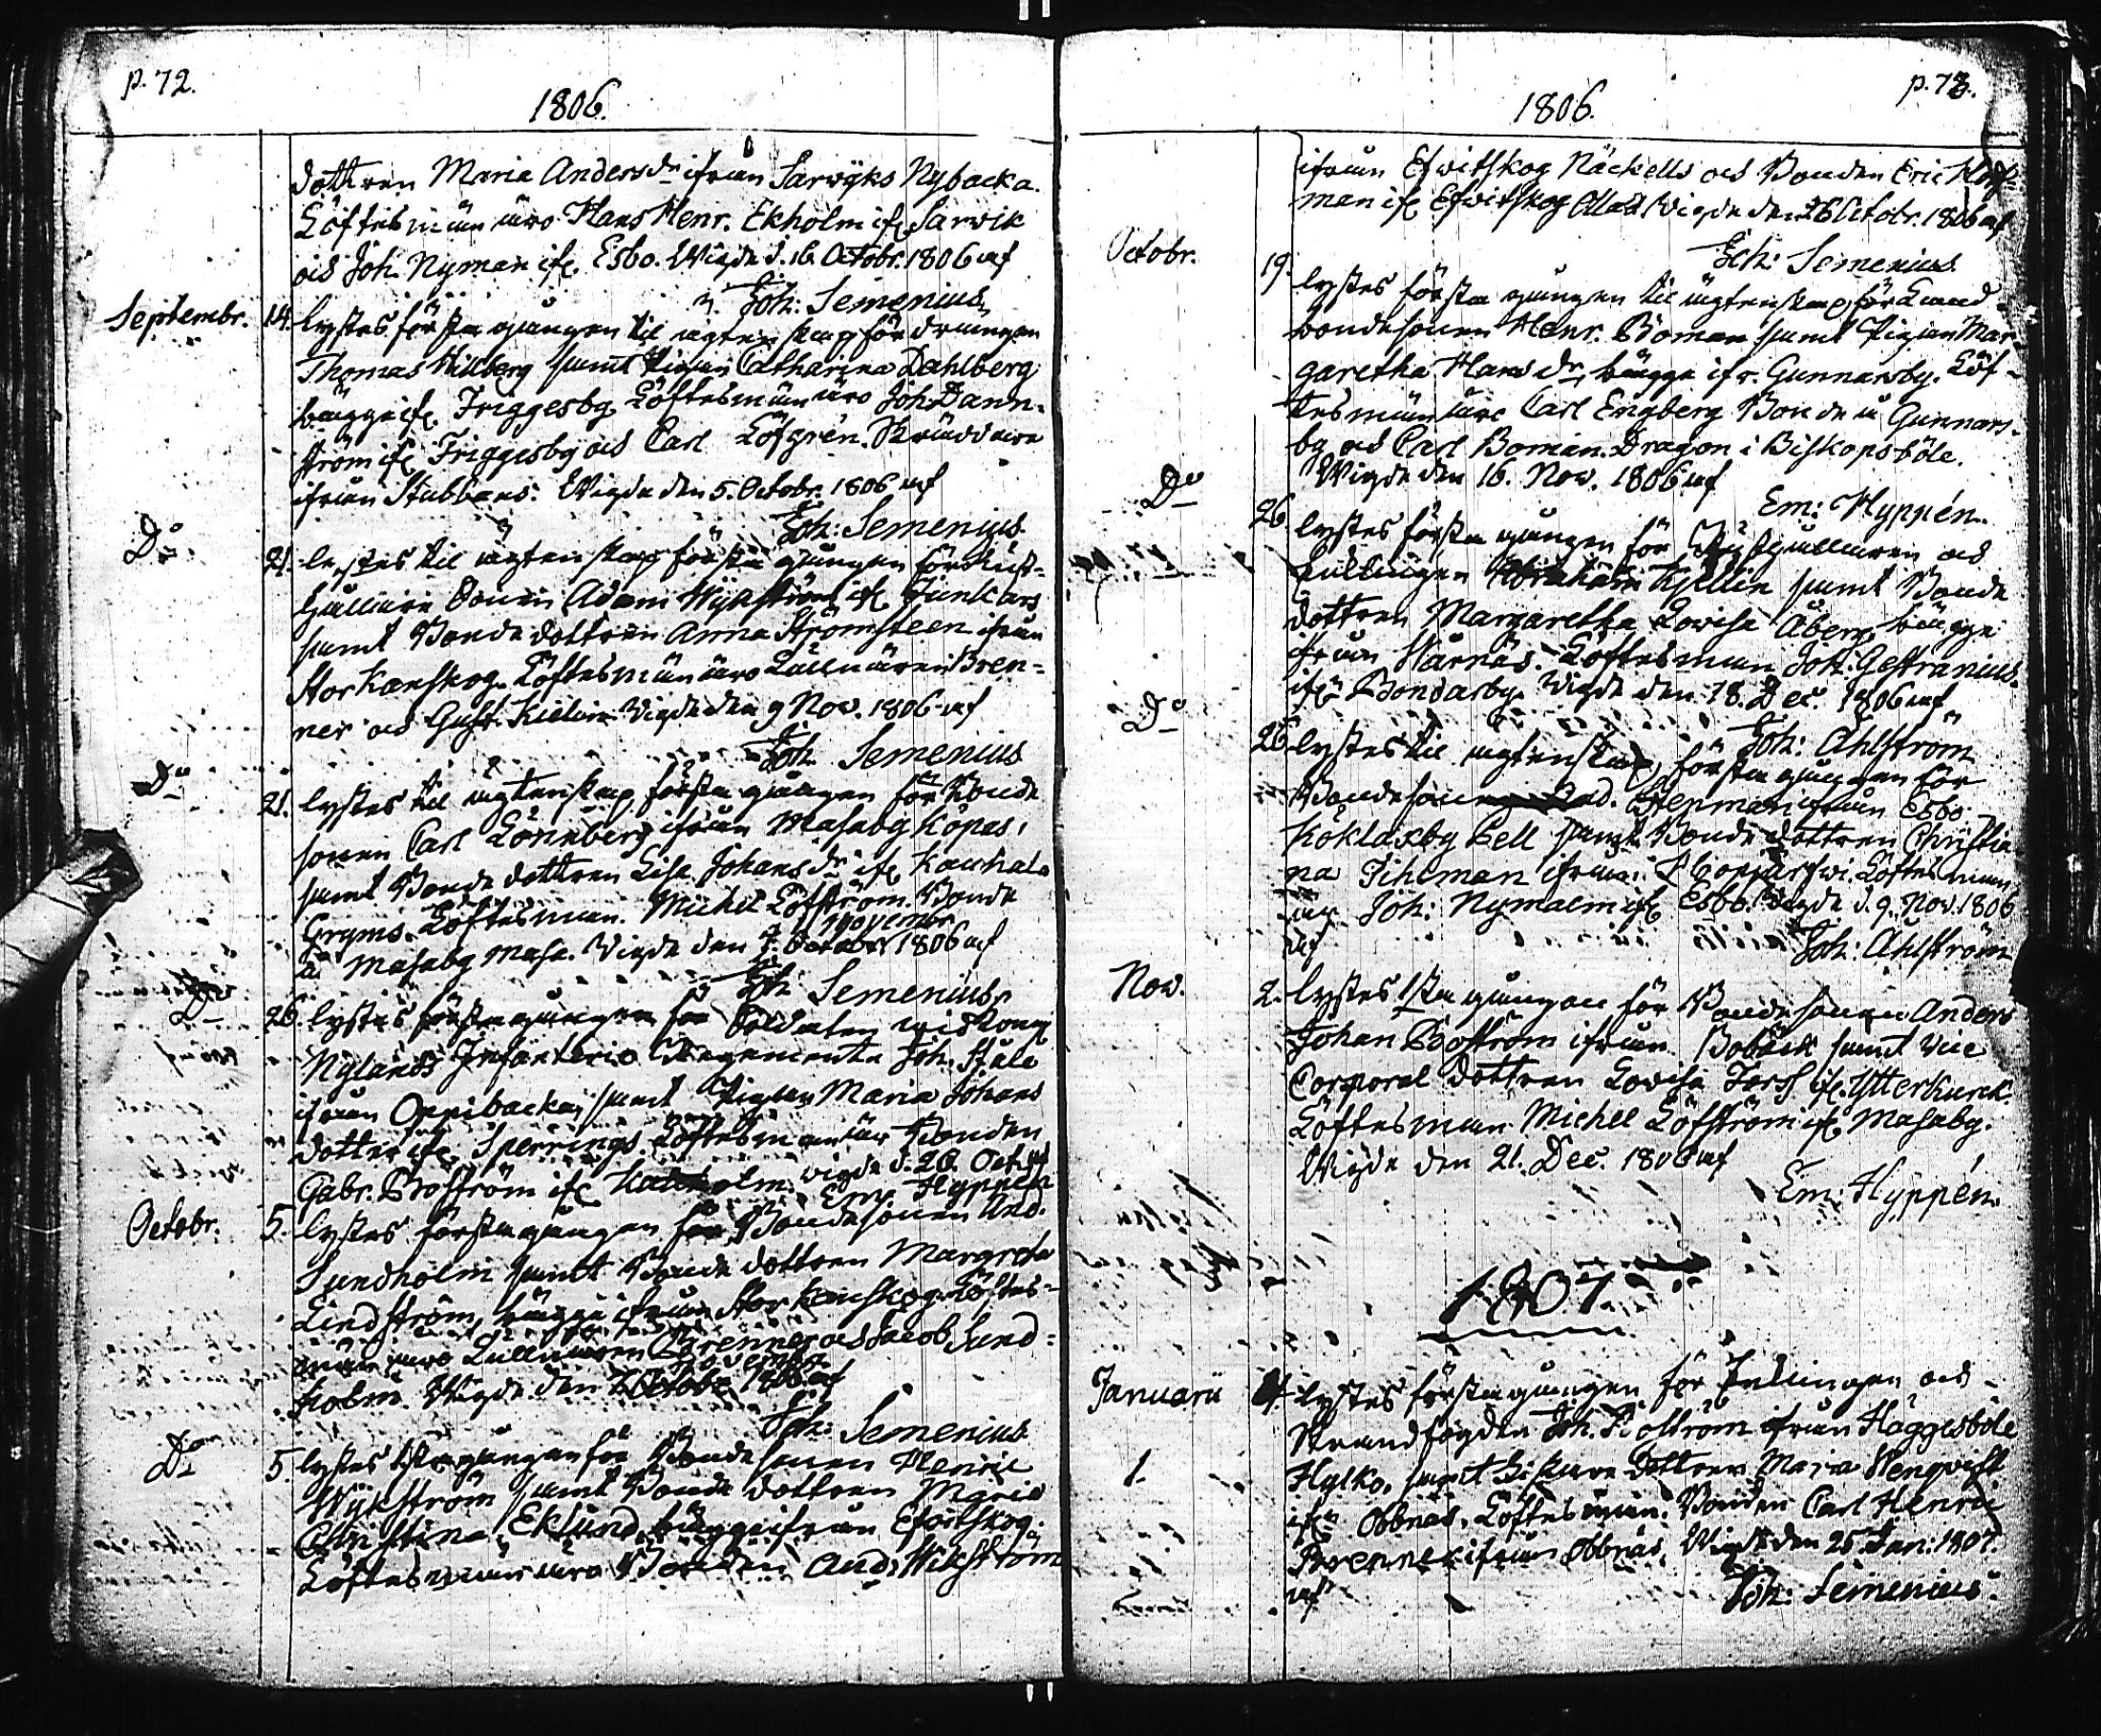 p. 72.
1806.
dottren Maria Andersdr ifrån Sarwyks Nybacka.
Löftesmän äro Hans Henr. Ekholm ifr. Sarwik
och Joh. Nyman ifr. Esbo. Wigde d. 16. Octobr. 1806 af
Joh: Semenius.
Septembr. 14. lystes första gången til ägtenskap för drängen
Thomas Hillberg samt Pigan Catharina Dahlberg
bägge ifr. Friggesby. Löftesmän äro Joh. Dann-
ström ifr. Friggesby och Carl Löfgrén. Skräddare
ifrån Stubbans. Wigde den 5. Octobr. 1806 af
Joh: Semenius.
Do 21. lystes til ägtenskap första gången för Rust-
hållare Sonen Adam Wykström ifr. Junkars
samt Bonde dottren Anna Strömsteen ifrån
Stor Kanskog. Löftesmän äro Länsmannen Bren-
ner och Gust. Kielin. Wigde den 9 Nov. 1806 af
Joh. Semenius
Do 21. lystes til ägtenskap första gången för Bonde
sonen Carl Lönnberg ifrån Masaby Kopas,
samt Bonde dottren Lisa Johansdr ifr. Kauhala
Gryms. Löftesman Michel Löfström. Bonde
novembr
å Masaby Masa. Wigde den 7. October 1806 af
Joh. Semenius.
Do 26. lystes första gången för Soldaten wid Kongl
Nylands Infanterie Regemente Joh. Ståle
ifrån Oppibacka, samt Pigan Maria Johans
dotter ifr. Sperrings. Löftesman är Bonden
Gabr. Boström ifr. wigde d. 26. Oct. af
Em. Hyppén
Octobr. 5. lystes första gången för Bondesonen And.
Sundholm samt Bonde dottren Margreta
Lindström, bägge ifrån Stor Kanskog. Löftes-
män äro Brenner och Jacob Sund-
november
holm. Wigde den 7. Octobr 1806 af
Joh: Semenius
Do 5. lystes 1sta gången för Bonde sonen Henric
Wykström samt Bonde dottren Maria
Christina Eklund, bägge ifrån Efwitskog.
Löftesmän äro Bonden And. Wikström
p. 73.
1806.
ifrån Efwitskog Näckells och Bonden Eric Hoff-
man ifr. Efwitskog Wigde den 26 Octobr. 1806 af
Joh: Semenius.
Octobr. 19. lystes första gången til ägtenskap för Land-
bondesonen Henr. Boman samt Pigan Mar-
garetha Hansdr, bägge ifr. Gunnarsby. Löf-
tesmän äro Carl Engberg Bonde å Gunnars-
by och Carl Boman. Dragon i Biskopsböle.
Wigde den 16. Nov. 1806 af
Em: Hyppén.
Do 26 lystes första gången för Rusthållaren och
Enklingen Abraham Kjellin samt Bonde
dottren Margaretha Lovisa Åberg bägge
ifrån Wårnäs. Löftesman Joh. Gestranius.
ifr. Bondarby. Wigde den 18. Dec. 1806 af
Joh: Ahlström
Do 26 lystes til ägtenskap första gången för
Bondesonen And. Stenman ifrån Esbo
Köklaxby Pell samt Bonde dottren Christi-
na Tihlman ifrån Löftesman
är Joh: Nyman ifr. Esbo. Wigde d. 9. Nov. 1806
af
Joh: Ahlström
Nov. 2. lystes 1sta gången för Bonde sonen Anders
Johan Boström ifrån Bobäck samt Vice
Corporal dottren Lovisa Forss ifr. Ytterkurck.
Löftesman Michel Löfström ifr. Masaby.
Wigde den 21. Dec. 1806 af
Em: Hyppén.
1807.
Januarii 4. lystes första gången för Enklingen och
Strandfogden Joh. Boström ifrån Häggesböle
1. Hylko, samt fiskare dottren Maja Wenqvist
ifrån Obbnäs. Löftesman. Bonden Carl Henric
Brenner ifrån Obbnäs. Wigde den 25 Jan: 1807.
af
Joh: Semenius.